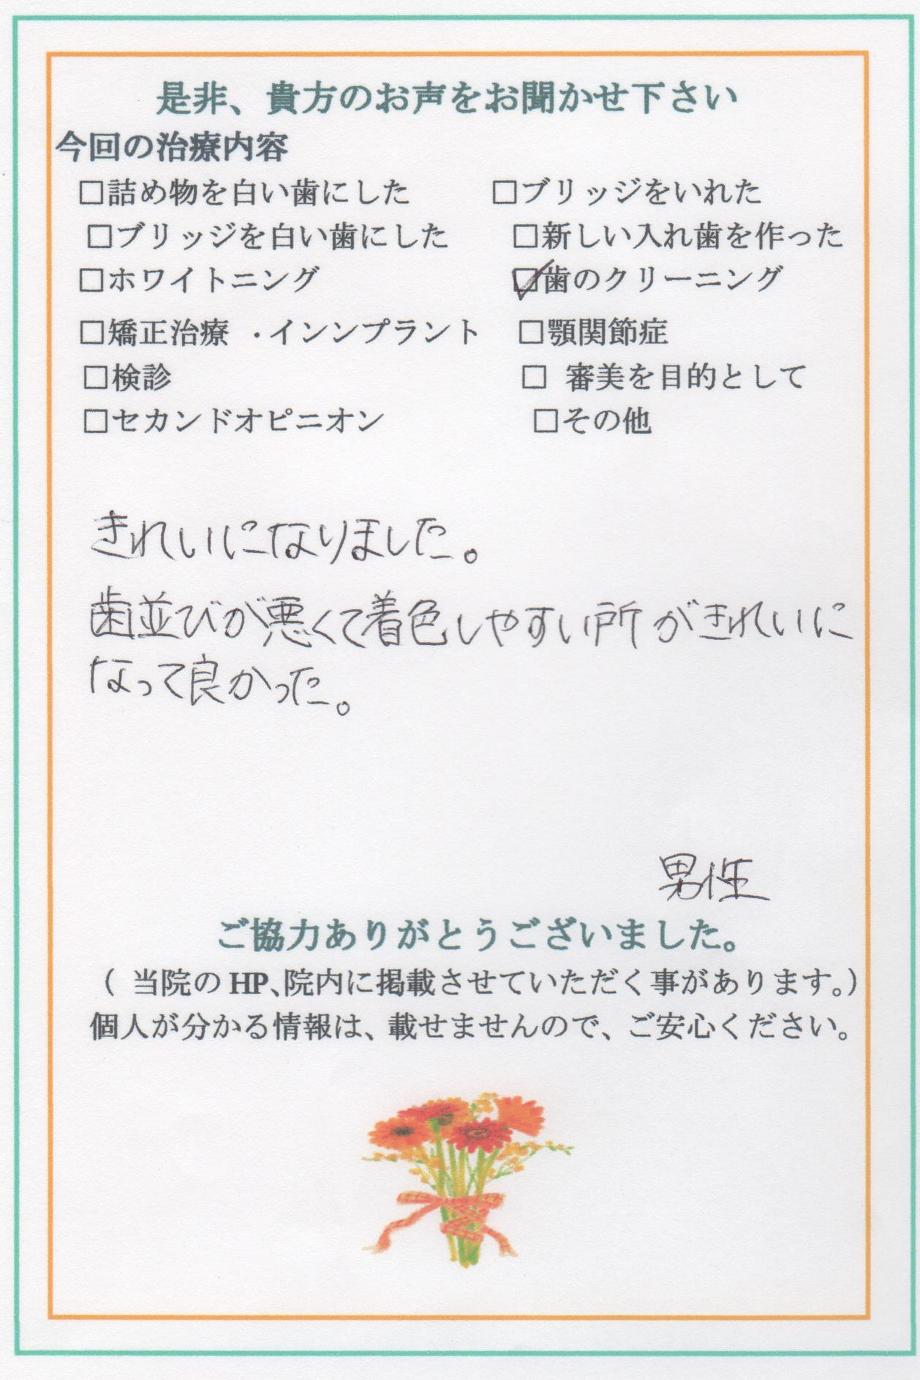 是非、貴方のお声をお聞かせ下さい
今回の治療内容
□詰め物を白い歯にした □ブリッジをいれた
□ブリッジを白い歯にした □新しい入れ歯を作った
□ホワイトニング ☑歯のクリーニング
□矯正治療 ・インンプラント □顎関節症
□検診 □ 審美を目的として
□セカンドオピニオン □その他
きれいになりました。
歯並びが悪くて着色しやすい所がきれいに
なって良かった。
男性
ご協力ありがとうございました。
( 当院の HP、院内に掲載させていただく事があります。)
個人が分かる情報は、載せませんので、ご安心ください。